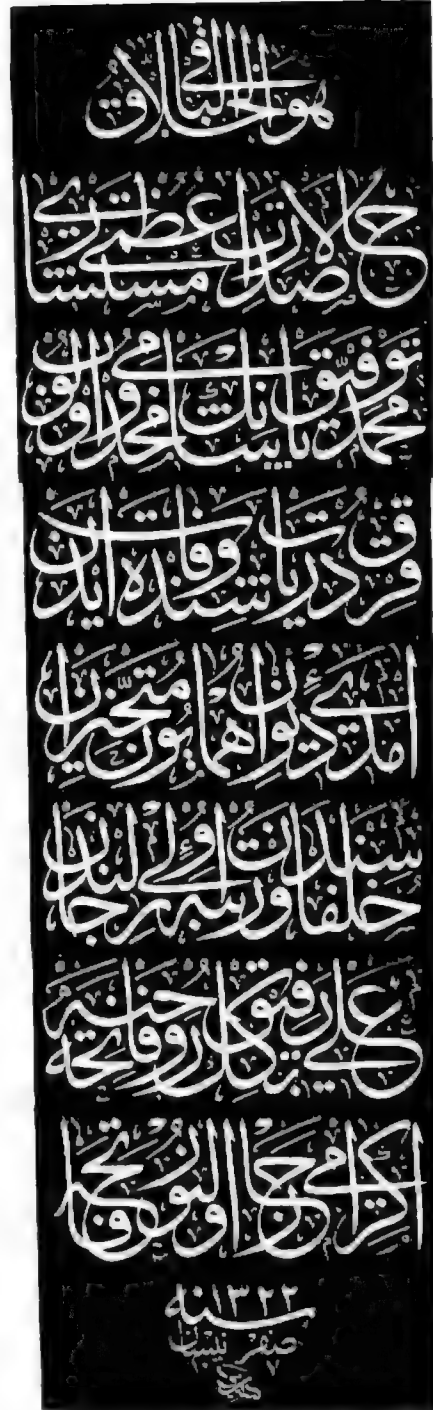 هو الخلاق الباقي
حالا صدارت عظمى مستشارى
محمد توفيق پاشانك مخدومى اولوب
قرق درت ياشنده وفات ايدن
آمدئ ديوان همايون متحيزان
خلفاسندن ورتبه اولى رجالندن
على رفيق بك روحنه فاتحه
اكرامى رجا اولنور فاتحه
سنه ١٣٢٢
صفر نيسان